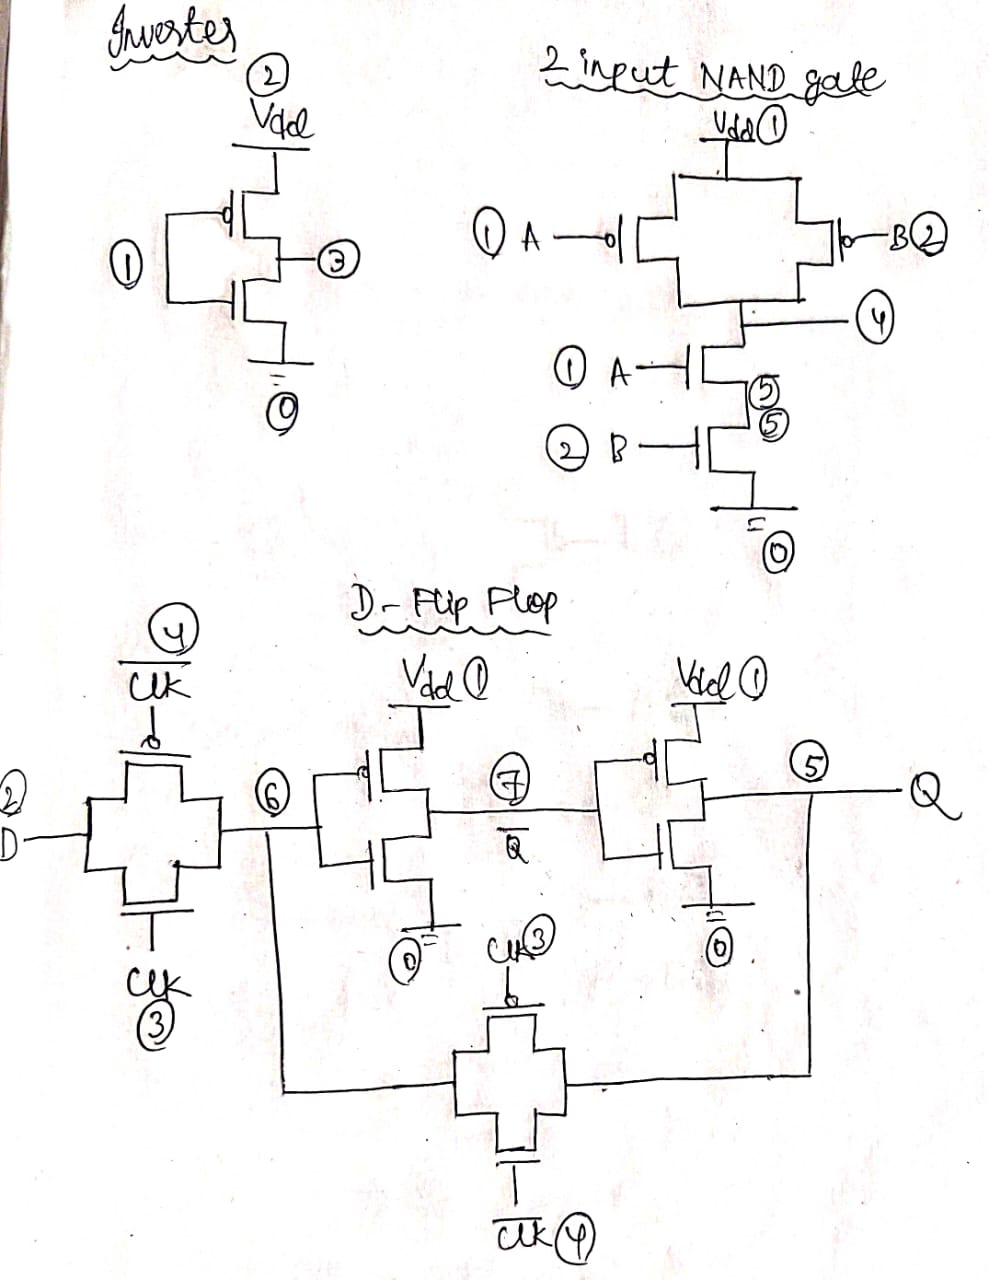 Inverter
②
Vdd
①
③
⓪
2 input NAND gate
Vdd ①
① A
B ②
④
① A
⑤
⑤
② B
⓪
D - Flip Flop
④
C̅l̅k̅
Vdd ①
Vdd ①
②
D
⑥
⑦
Q̅
⑤
Q
⓪
Clk ③
⓪
Clk
③
C̅l̅k̅ ④